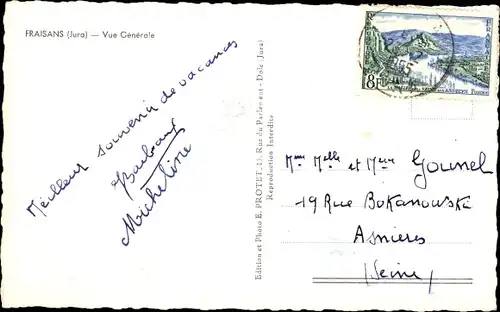 FRAISANS (Jura) — Vue Générale
Meilleur souvenir de vacances
Micheline
Edition et Photo E. PROTET, 23, Rue du Parlement - Dole (Jura)
Reproduction Interdite
8F
Mme Melle et Mr
19 Rue Bokanowski
Asnières
(Seine)